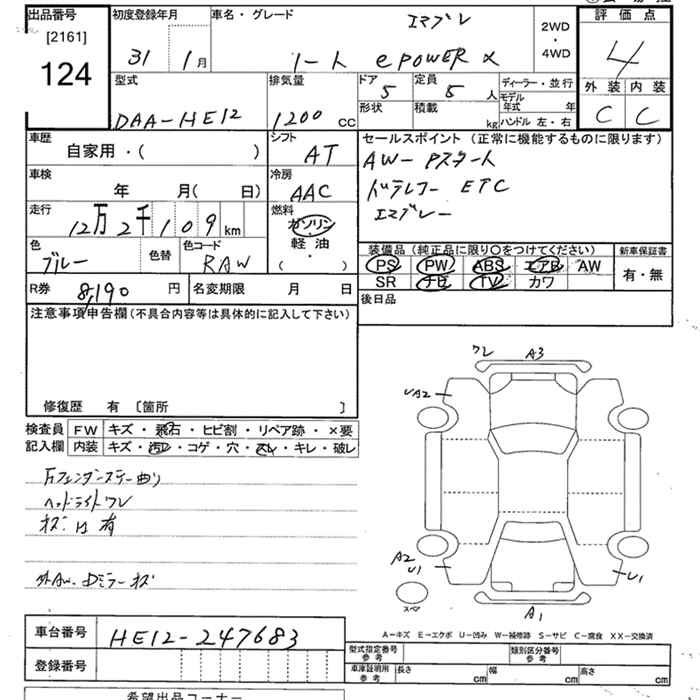 出品番号
[2161]
124
初度登録年月
31 1月
車名・グレード
エマブレ
ノート e POWER X
2WD
・
4WD
評価点
4
外装 内装
C C
型式
DAA-HE12
排気量
1200 CC
ドア
5
定員
5 人
形状
積載
kg
ディーラー・並行
モデル年式 年
ハンドル 左・右
車歴
自家用・( )
シフト
AT
セールスポイント (正常に機能するものに限ります)
AW- Pスタート
ドラレコー ETC
エマブレー
車検
年 月( 日)
冷房
AAC
走行
12万2千109km
燃料
ガソリン
軽油
・
( )
色
ブルー
色替
色コード
RAW
装備品 (純正品に限り○をつけてください)
PS PW ABS エアB AW
SR ナビ TV カワ
新車保証書
有・無
R券
8,190 円
名変期限 月 日
後日品
注意事項申告欄(不具合内容等は具体的に記入して下さい)
修復歴 有 〔箇所 〕
検査員
記入欄
FW キズ・飛石・ヒビ割・リペア跡・×要
内装 キズ・汚レ・コゲ・穴・スレ・キレ・破レ
フェンダーステー曲り
ヘッドライトワレ
キズ凹有
外AW・Dミラーキズ
ワレ A3
UA2
A2
U1
U1
A1
スペア
A-キズ E-エクボ U-凹み W-補修跡 S-サビ C-腐食 XX-交換済
車台番号
HE12-247683
登録番号
型式指定番号
参考
類別区分番号
参考
車庫証明用
参考
長さ cm 幅 cm 高さ cm
希望出品コーナー